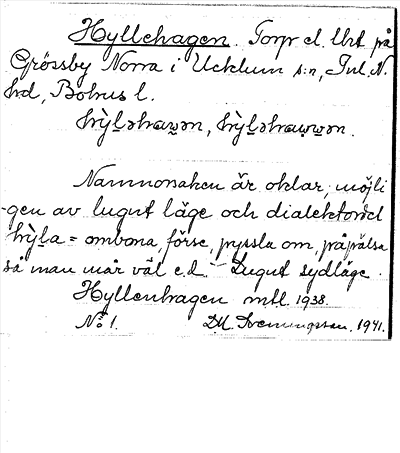 Hyllehagen. Torp el. lht på
Grössby Norra i Ucklum s:n, Inl. N.
hd, Bohus l.
hỳl̥əhaw̥ən, hỳl̥əhaw̥w̥ən.
Namnorsaken är oklar, möjli
-gen av lugnt läge och dialektordet
hỳl̥a = ombona, förse, pyssla om, påpälsa
så man mår väl e.d. – Lugnt sydläge.
Hyllenhagen mtl. 1938.
No 1. 1941.